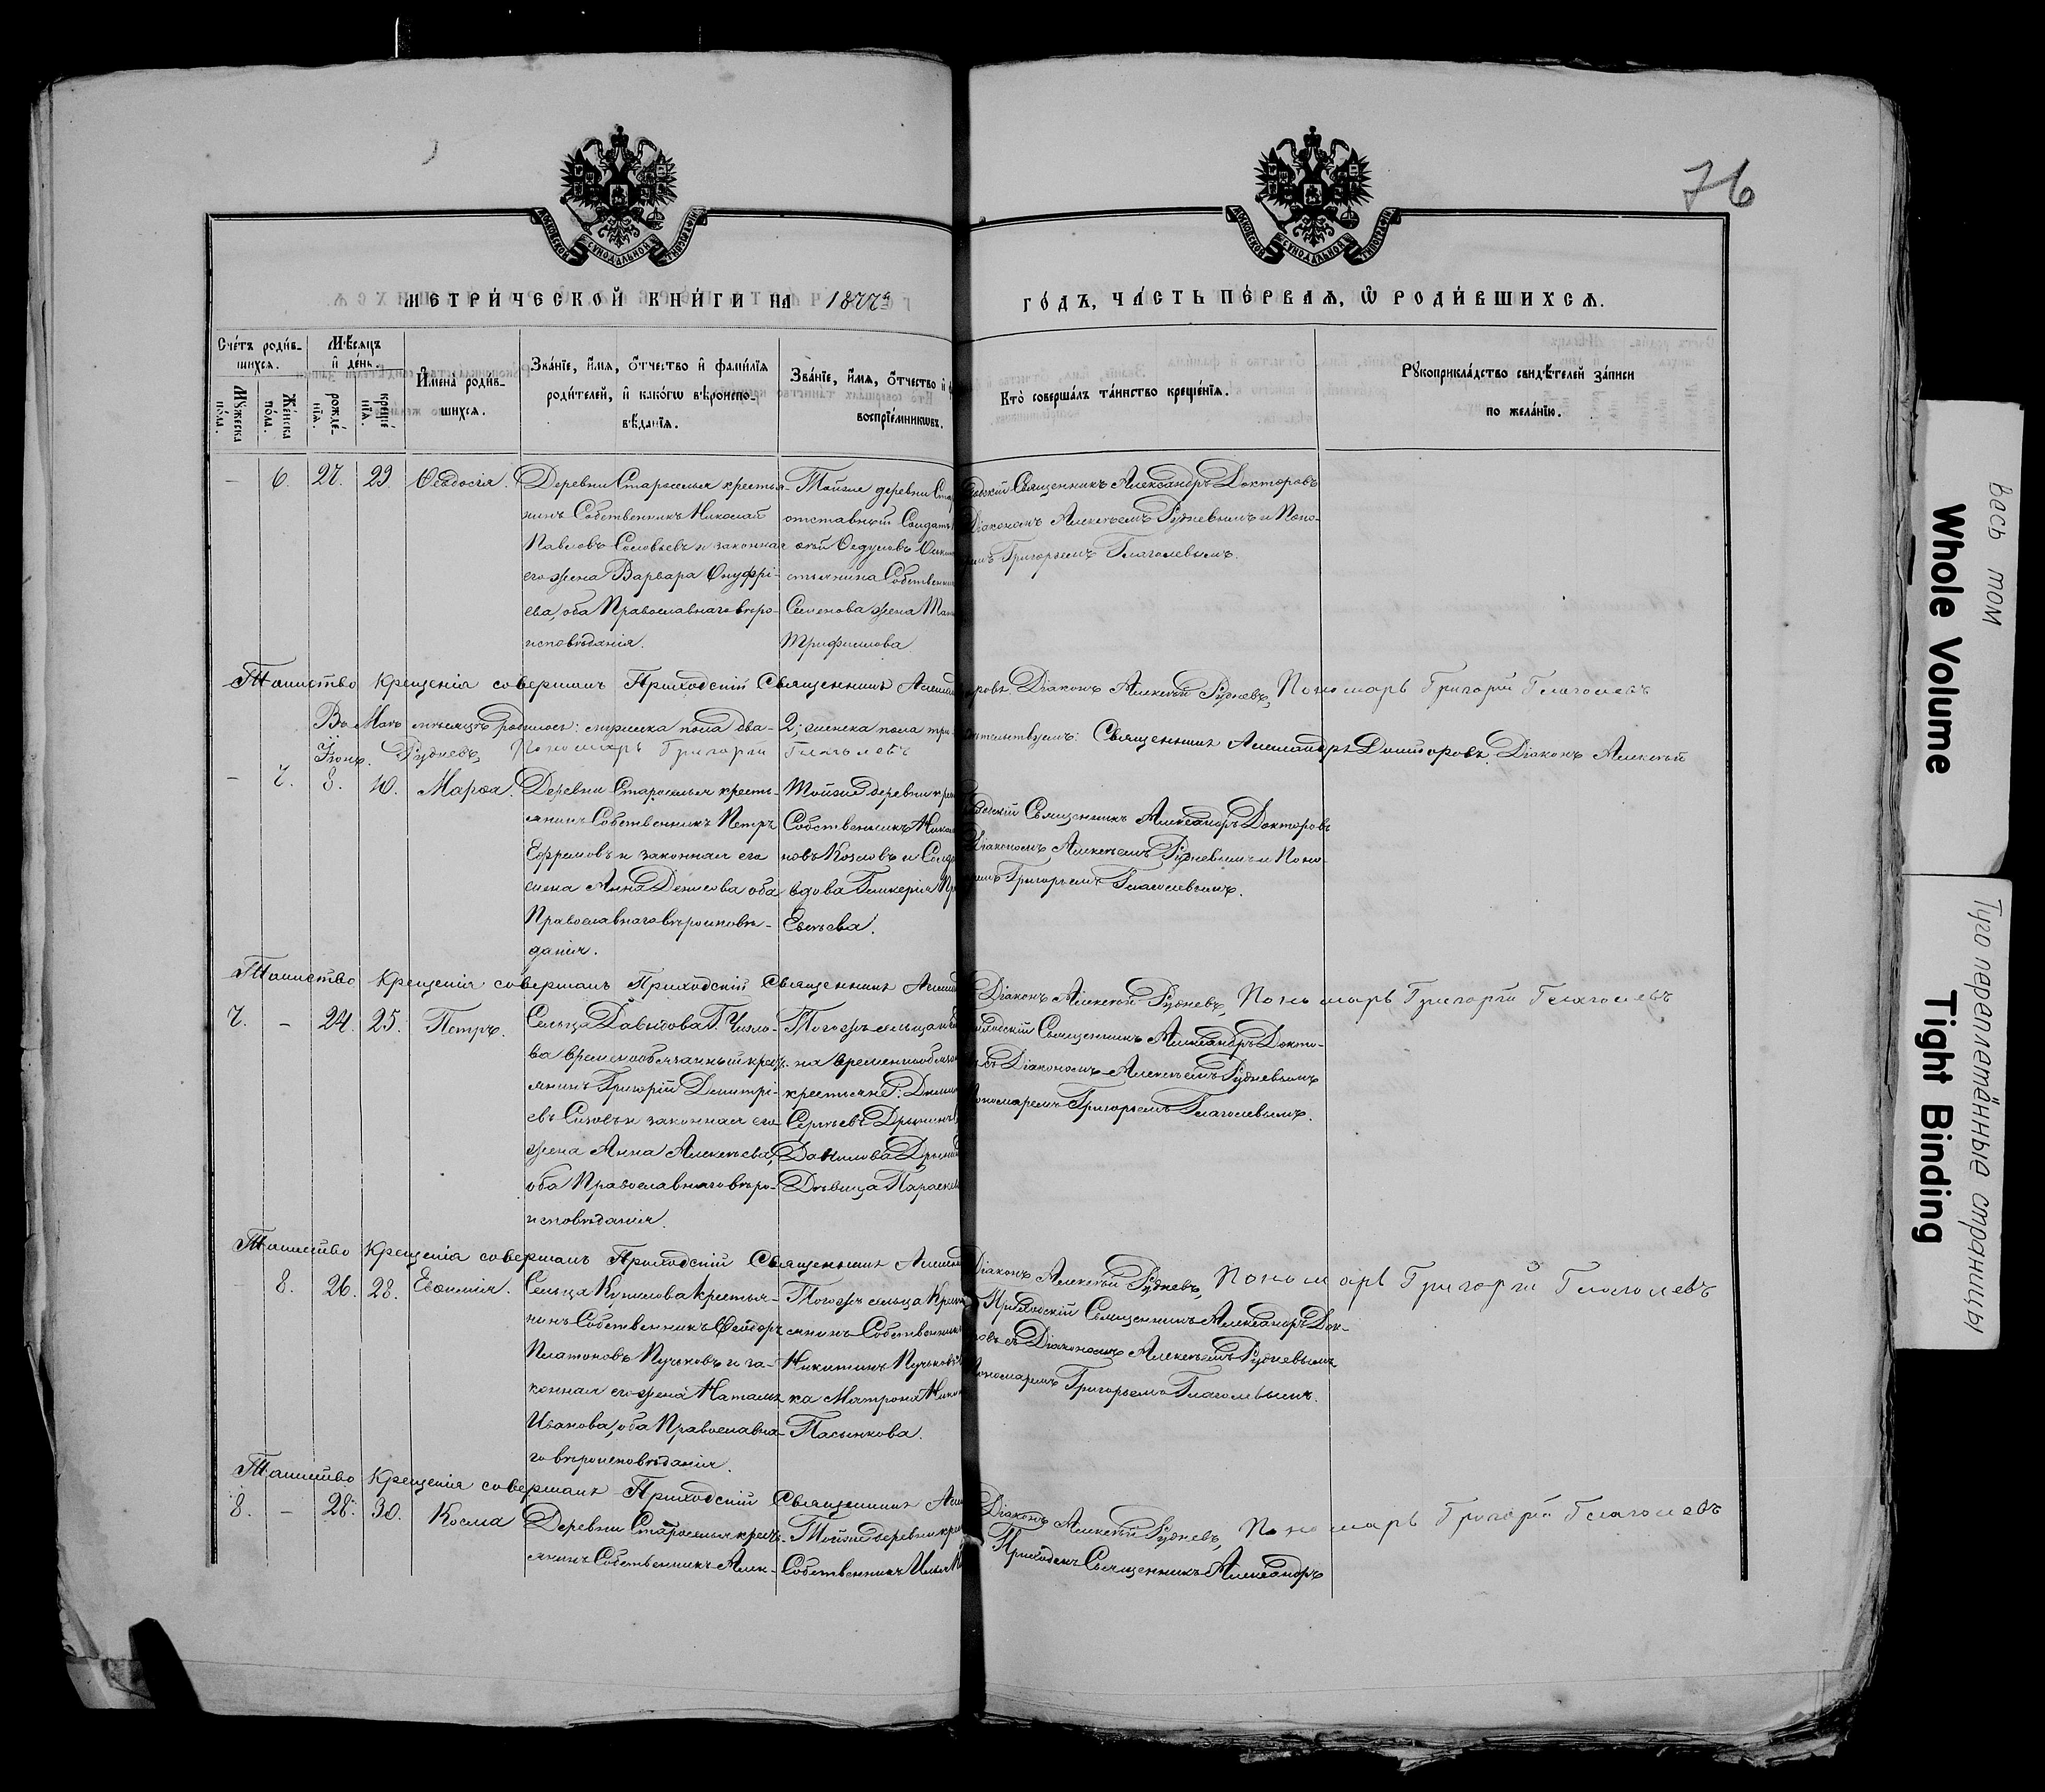 76
МОСКОВСКОЙ СѴНОДАЛЬНОЙ ТИПОГРАФІИ
МОСКОВСКОЙ СѴНОДАЛЬНОЙ ТИПОГРАФІИ
МЕТРИ́ЧЕСКОЙ КНИ́ГИ НА 1877й
ГО́ДЪ, ЧА́СТЬ ПЕ́РВАѦ, Ѡ РОДИ́ВШИХСѦ.
Сче́тъ роди́в-
шихсѧ.
Му́жеска по́ла.
Же́нска по́ла.
Мѣ́сѧцъ
и҆ де́нь.
рожде́-
нїѧ.
креще́-
нїѧ.
И҆мена̀ роди́в-
шихсѧ.
Зва́нїе, и҆́мѧ, ѻ҆́тчество и҆ фамѵ́лїѧ
роди́телей, и҆ како́гѡ вѣроисповѣ́-
данїѧ.
Зва́нїе, и҆́мѧ, ѻ҆́тчество и҆
воспрїе́мникѡвъ.
Кто̀ соверша́лъ та́инство креще́нїѧ.
Рꙋкоприкла́дство свидѣ́телей за́писи
по жела́нїю.
– 6. 27. 29. Ѳеодосія.
Деревни Староселья крестья-
нинъ Собственникъ Николай
Павловъ Соловьевъ и законная
его жена Варвара Онуфрі-
ева, оба Православнаго вѣро-
исповѣданія.
Тойже деревни Ста
отставный Солдатъ
Ѳедуловъ
стьянина Собственни
Семенова жена
Трифиллова.
Священникъ Александръ Докторовъ
Діакономъ Алексѣемъ Рудневымъ и Поно-
Григорьемъ Глаголевымъ.
Таинство Крещенія совершалъ Приходскій Священникъ Алексан
Діаконъ Алексѣй Рудневъ, Пономарь Григорій Глаголевъ
Въ Маѣ мѣсяцѣ родилось: мужеска пола два – 2; женска пола три
Священникъ Александръ Докторовъ. Діаконъ Алексѣй
Рудневъ, Пономарь Григорій Глаголевъ
Іюнь.
– 7. 8. 10. Марѳа.
Деревни Староселья кресть-
янинъ Собственникъ Петръ
Ефремовъ и законная его
жена Анна Денисова оба
Православнаго вѣроисповѣ-
данія.
Тойже деревни крес
Собственникъ Никол
новъ Козловъ и Солда
вдова Гликерія
Евсѣева.
Священникъ Александръ Докторовъ
Діакономъ Алексѣемъ Рудневымъ и Поно-
Григорьемъ Глаголевымъ.
Таинство Крещенія совершалъ Приходскій Священникъ Алексан
Діаконъ Алексѣй Рудневъ, Пономарь Григорій Глаголевъ
7. – 24. 25. Петръ.
Сельца Давыдова Г. Чизло-
ва временнообязанный крест-
янинъ Григорій Димитрі-
евъ Сизовъ и законная его
жена Анна Алексѣева,
оба Православнаго вѣро-
исповѣданія.
Тогожъ сельца
на временнообязан
крестьяне:
Сергѣевъ
Данилова
Дѣвица Параскев
Священникъ Александръ Докто-
Діакономъ Алексѣемъ Рудневымъ
Пономаремъ Григорьемъ Глаголевымъ.
Таинство Крещенія совершалъ Приходскій Священникъ Алексан
Діаконъ Алексѣй Рудневъ, Пономарь Григорій Глаголевъ
– 8. 26. 28. Евѳимія.
Сельца Курилова крестья-
нинъ Собственникъ Ѳеодоръ
Платоновъ Пучковъ и за-
конная его жена Наталья
Иванова, оба Православна-
го вѣроисповѣданія.
Тогожъ сельца Крест
янинъ Собственникъ
Никитинъ Пучковъ
ка Матрона
Пасынкова.
Приходскій Священникъ Александръ Док-
съ Діакономъ Алексѣемъ Рудневымъ
Пономаремъ Григорьемъ Глаголевымъ.
Таинство Крещенія совершалъ Приходскій Священникъ Алек
Діаконъ Алексѣй Рудневъ, Пономарь Григорій Глаголевъ
8. – 28. 30. Косма
Деревни Староселья крест-
янинъ Собственникъ Алек-
Тойже деревни крес
Собственникъ Илья
Священникъ Александръ
Весь том
Whole Volume
Туго переплетённые страницы
Tight Binding